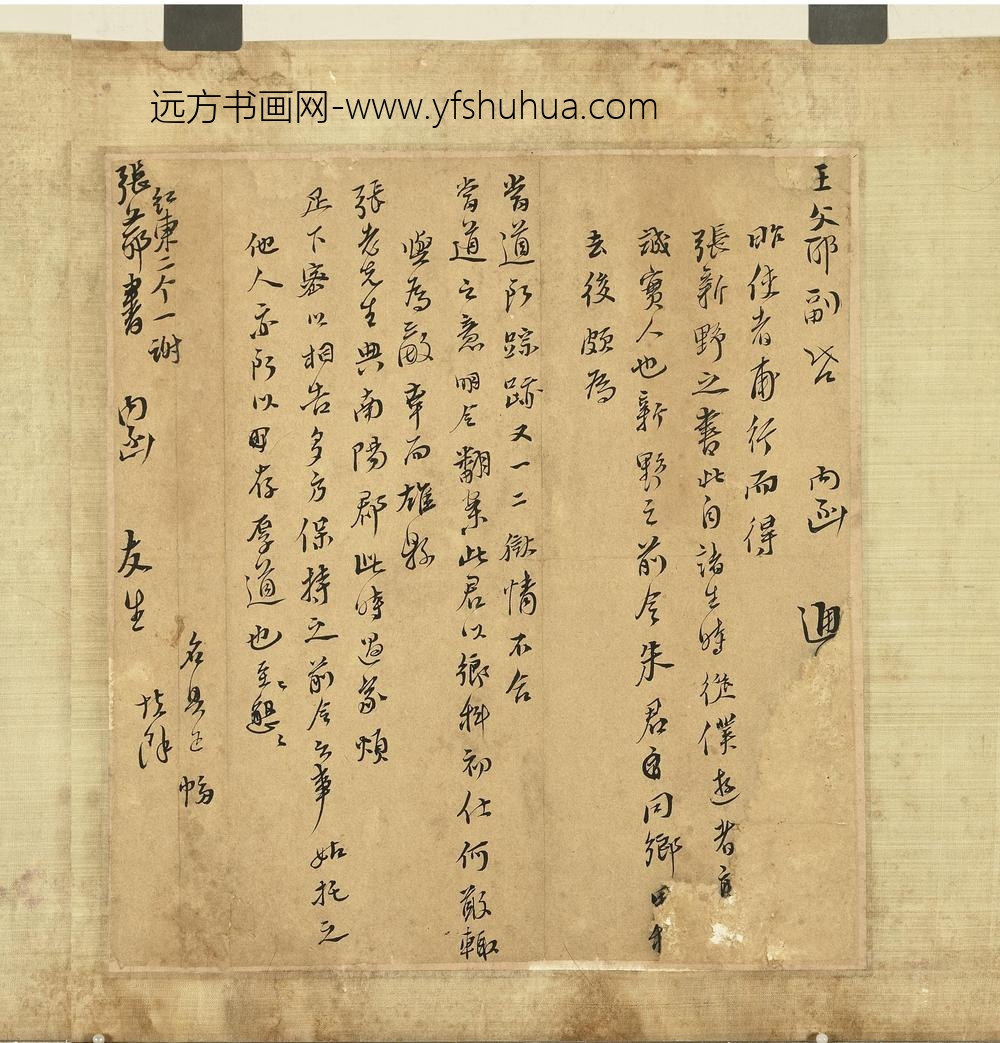 远方书画网-www.yfshuhua.com
王父邴副啓 内函
昨使者甫行而得
張新野之書此自諸生時從僕遊者
誠實人也新野之前令朱君自同鄉
去後頗為
當道所踪跡又一二獄情不合
當道之意明令翻案此君以鄉科初仕何敢輒
與為敵幸而雄縣
張老先生典南陽郡此時過蒙煩
足下密以相告多方保持之前令之事姑托之
他人亦所以明存厚道也至懇
名具正幅
紅東二个一謝
張 書 内函 友生